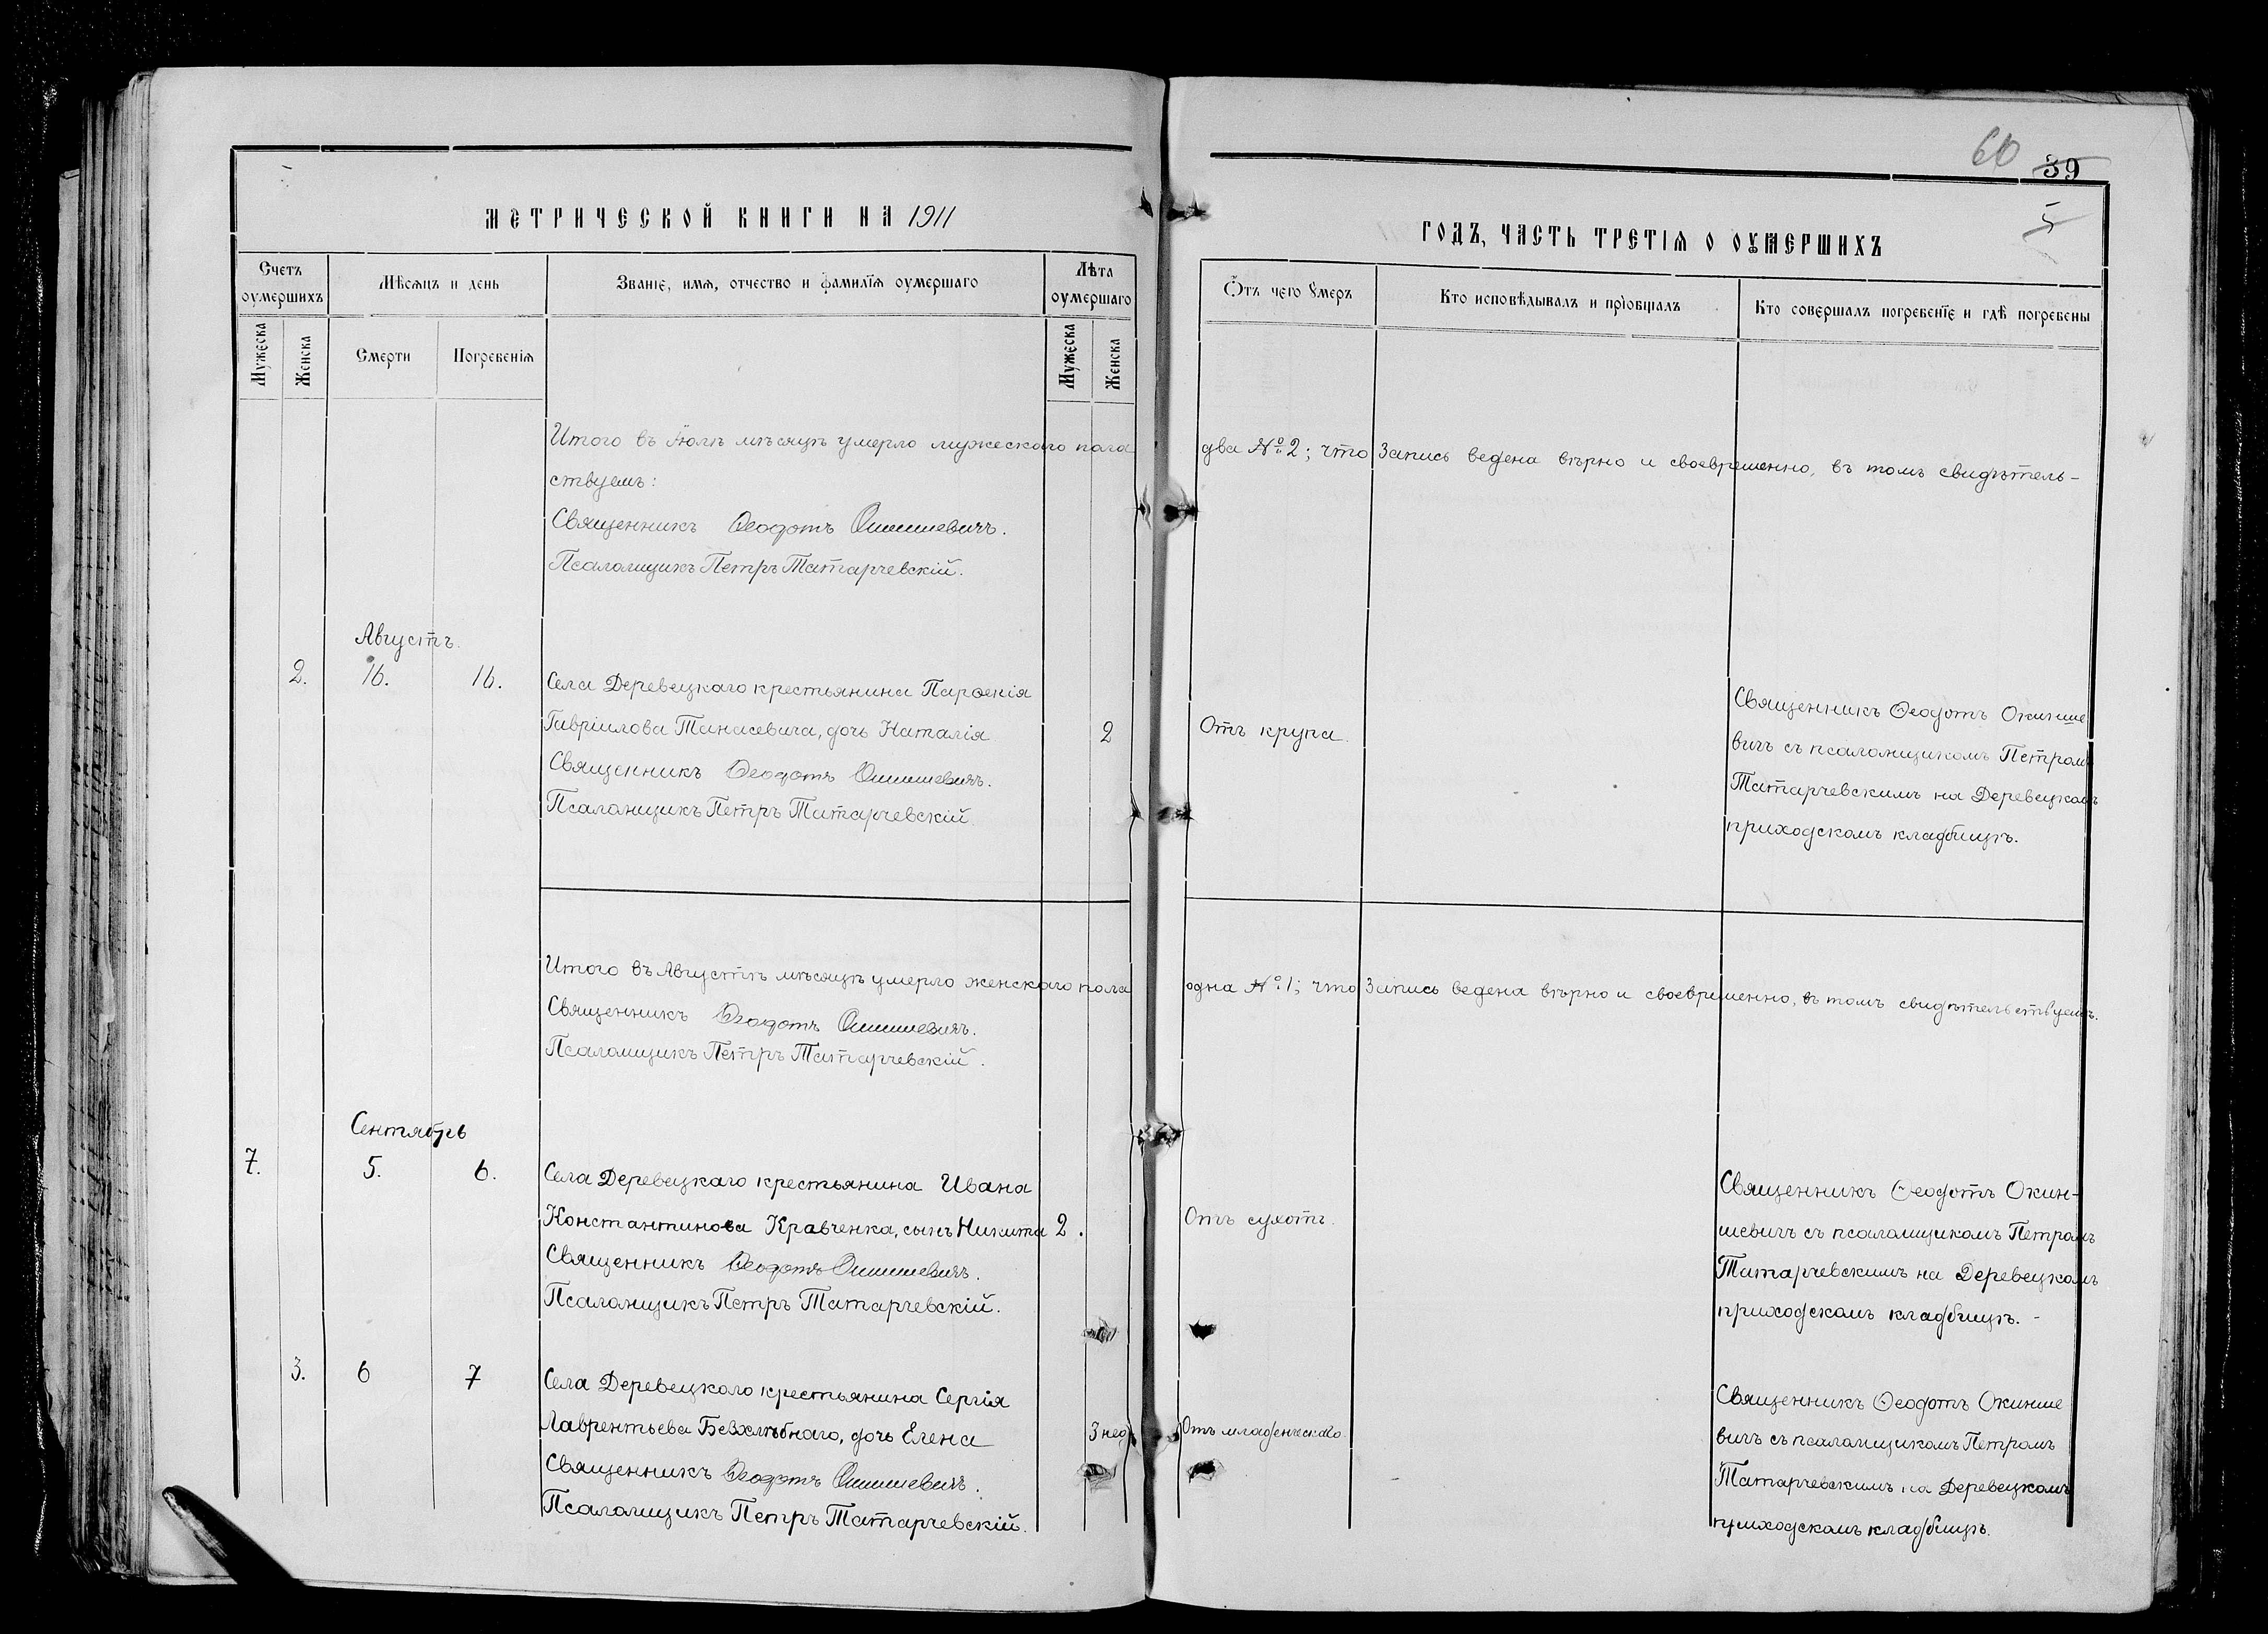 60 39
5
МЕТРИЧЕСКОЙ КНИГИ НА 1911
ГОДЪ, ЧАСТЬ ТРЕТІѦ О ОУМЕРШИХЪ
Счетъ оумершихъ
Мѣсяцъ и день
Званіе, имя, отчество и фамилїя оумершаго
Лѣта оумершаго
Ѿтъ чего ꙋмеръ
Кто исповѣдывалъ и прїобщалъ
Кто совершалъ погребенїе и гдѣ погребены
Мужеска
Женска
Смерти
Погребенія
Мужеска
Женска
Итого въ Іюлѣ мѣсяцѣ умерло мужескаго пола два № 2; что Запись ведена вѣрно и своевременно, въ томъ свидѣтель-
ствуемъ:
Священникъ Ѳеодотъ Окиншевичъ.
Псаломщикъ Петръ Татарчевскій.
Августъ.
2. 16. 16.
Села Деревецкаго крестьянина Парѳенія
Гавріилова Танасевича, дочь Наталія
2
Священникъ Ѳеодотъ Окиншевичъ.
Псаломщикъ Петръ Татарчевскій.
Отъ крупа.
Священникъ Ѳеодотъ Окинше
вичъ съ псаломщикомъ Петромъ
Татарчевскимъ на Деревецкомъ
приходскомъ кладбищѣ.
Итого въ Августѣ мѣсяцѣ умерло женскаго пола одна № 1; что Запись ведена вѣрно и своевременно, въ томъ свидѣтельствуемъ.
Священникъ Ѳеодотъ Окиншевичъ.
Псаломщикъ Петръ Татарчевскій.
Сентябрь
7. 5. 6.
Села Деревецкаго крестьянина Ивана
Константинова Кравченка, сынъ Никита
2.
Священникъ Ѳеодотъ Окиншевичъ.
Псаломщикъ Петръ Татарчевскій.
Отъ сухотъ.
Священникъ Ѳеодотъ Окин-
шевичъ съ псаломщикомъ Петромъ
Татарчевскимъ на Деревецкомъ
приходскомъ кладбищѣ. -
3. 6 7
Села Деревецкого крестьянина Сергія
Лаврентьева Безхлѣбнаго, дочь Елена
3 нед.
Священникъ Ѳеодотъ Окиншевичъ.
Псаломщикъ Петръ Татарчевскій.
Отъ младенческаго.
Священникъ Ѳеодотъ Окинше
вичъ съ псаломщикомъ Петромъ
Татарчевскимъ на Деревецкомъ
приходскомъ кладбищѣ.